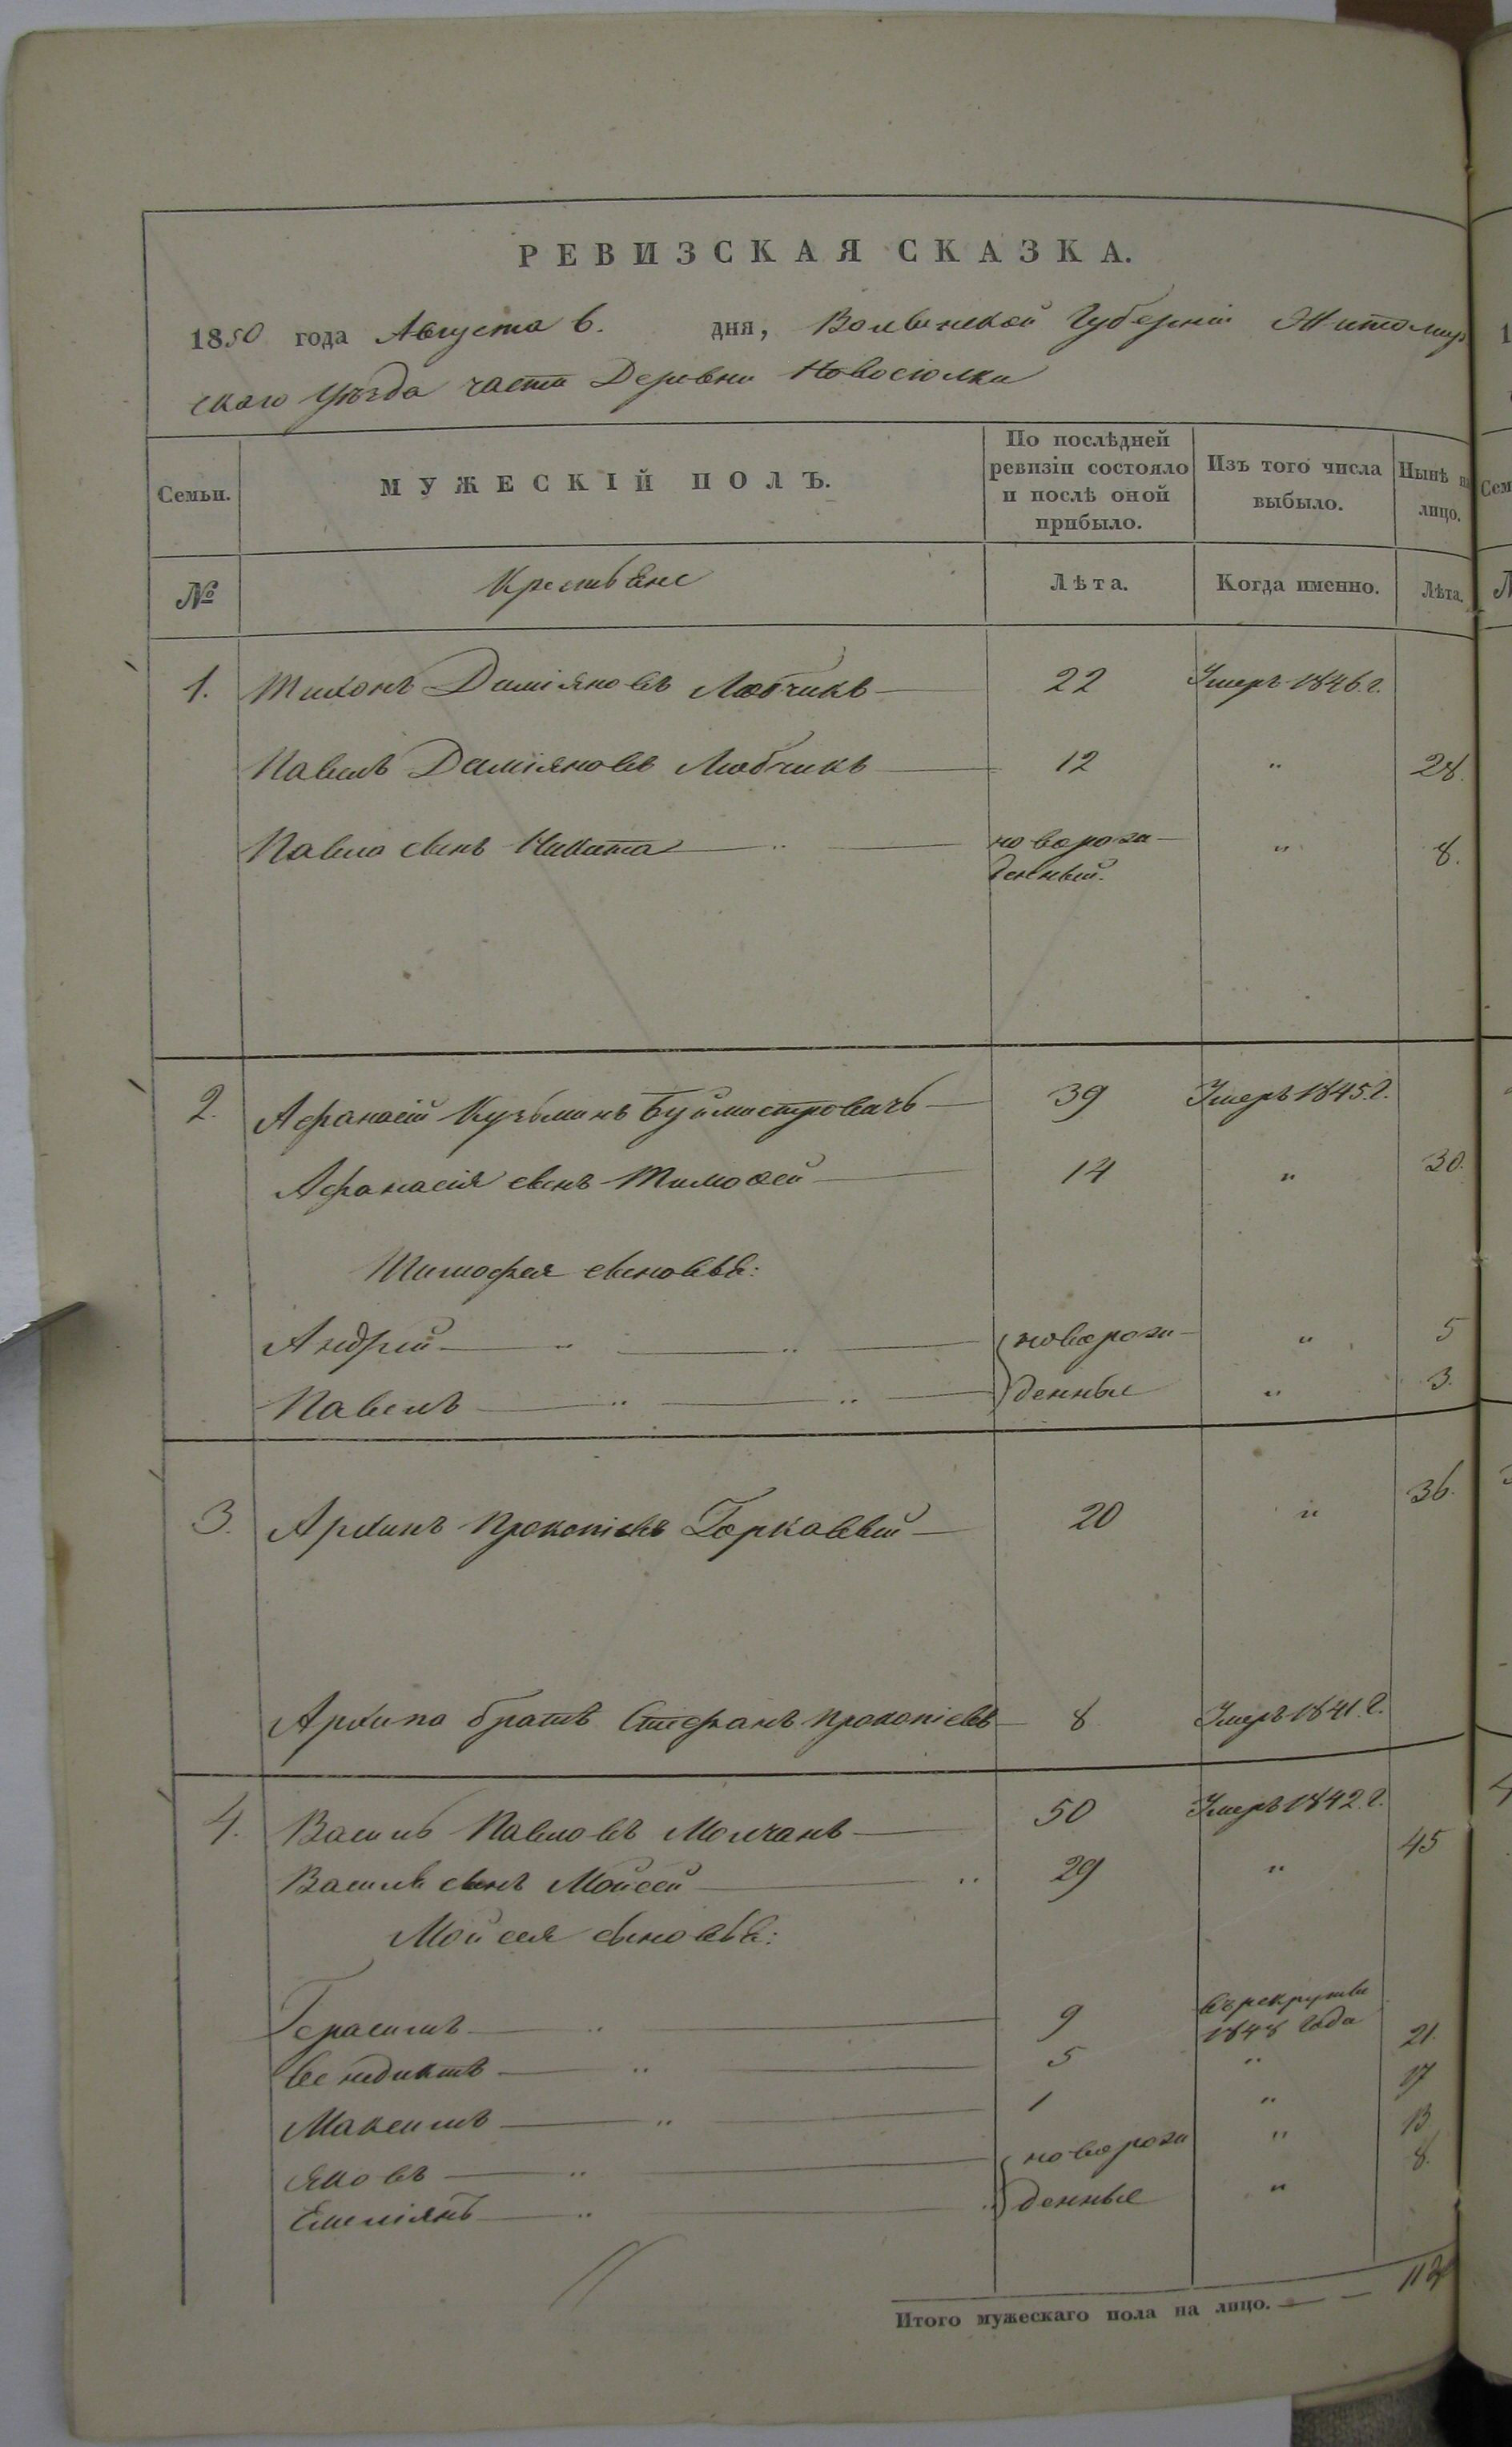 РЕВИЗСКАЯ СКАЗКА.
1850 года Августа 6. дня, Волынской Губерніи Житомир
скаго Уѣзда части Деревни Новосіолки
Семьи. МУЖЕСКІЙ ПОЛЪ. По послѣдней ревизіи состояло и послѣ оной прибыло. Изъ того числа выбыло. Нынѣ на лицо.
№ Крестьяне Лѣта. Когда именно. Лѣта.
1. Тихонъ Даміяновъ Любчикъ — 22 Умеръ 1846 г.
Павелъ Даміяновъ Любчикъ — 12 " 28.
Павла сынъ Никита — " — новорож- " 8.
денный.
2. Афанасій Кузьминъ Бурмистровичъ — 39 Умеръ 1845. г.
Афанасія сынъ Тимофей — 14 " 30.
Тимофея сыновья:
Андрей — " — " — новорож- " 5
Павелъ — " — " — денные " 3.
3. Архипъ Прокопіевъ Горкавый — 20 " 36.
Архипа братъ Стефанъ Прокопіевъ — 8 Умеръ 1841. г.
4. Василь Павловъ Молчанъ — 50 Умеръ 1842. г.
Василя сынъ Мойсей — " 29 " 45
Мойсея сыновья:
Герасимъ — " — 9 въ рекруты
1848 года
Венедиктъ — " — 5 " 21.
Максимъ — " — 1 " 17
Яковъ — " — новорож " 13
Емеліянъ — " — денные " 8.
Итого мужескаго пола на лицо. — —